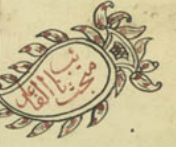 مبحث نائب الفاعل